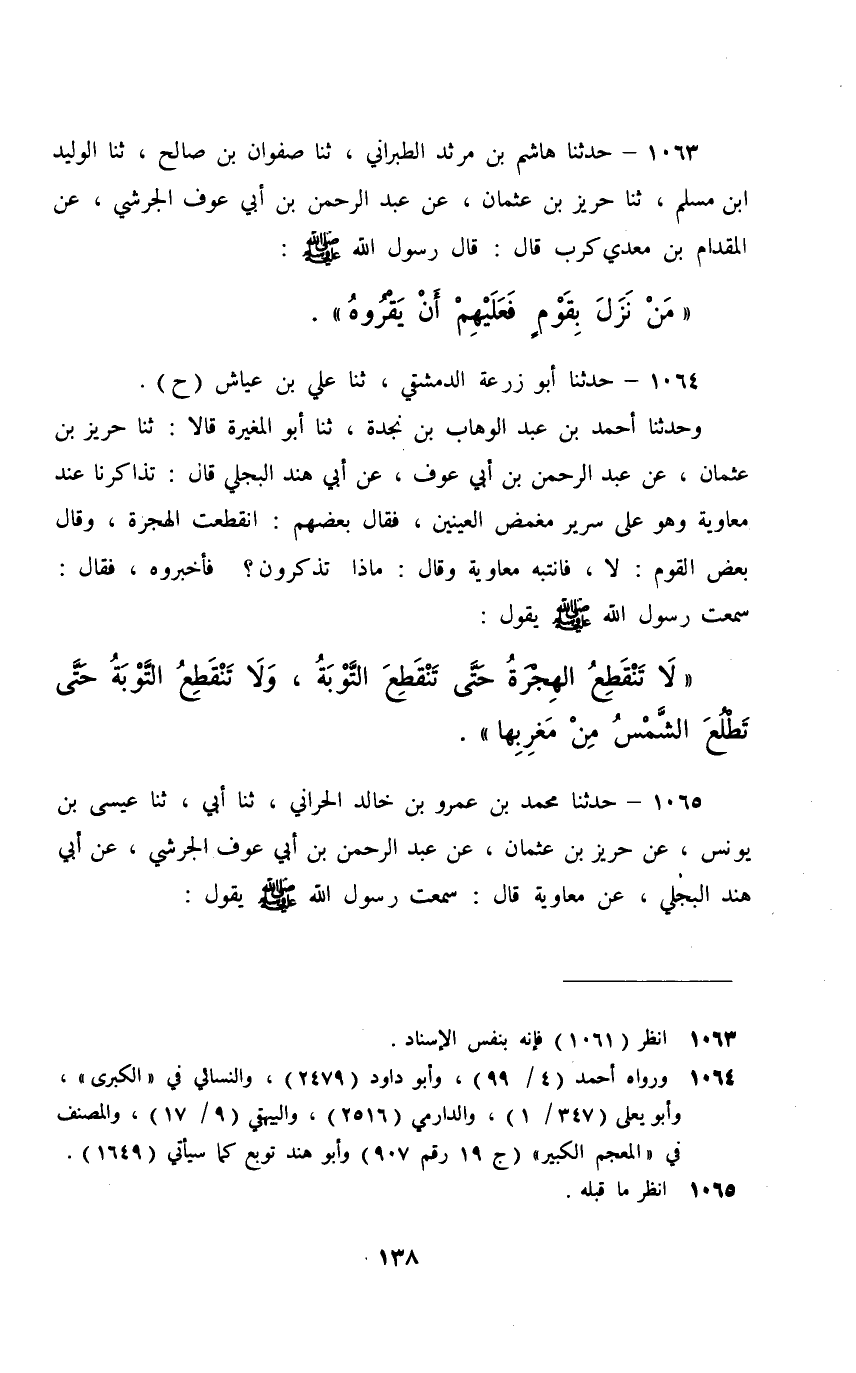 ١٠٦٣ - حدثنا هاشم بن مرثد الطبراني ، ثنا صفوان بن صالح ، ثنا الوليد
ابن مسلم ، ثنا حريز بن عثمان ، عن عبد الرحمن بن أبي عوف الجرشي ، عن
المقدام بن معدي كرب قال : قال رسول الله ﷺ :
« مَنْ نَزَلَ بِقَوْمٍ فَعَلَيْهِمْ أَنْ يَقْرُوهُ » .
١٠٦٤ - حدثنا أبو زرعة الدمشقي ، ثنا علي بن عياش (ح) .
وحدثنا أحمد بن عبد الوهاب بن نجدة ، ثنا أبو المغيرة قالا : ثنا حريز بن
عثمان ، عن عبد الرحمن بن أبي عوف ، عن أبي هند البجلي قال : تذاكرنا عند
معاوية وهو على سرير مغمض العينين ، فقال بعضهم : انقطعت الهجرة ، وقال
بعض القوم : لا ، فانتبه معاوية وقال : ماذا تذكرون ؟ فأخبروه ، فقال :
سمعت رسول الله ﷺ يقول :
« لَا تَنْقَطِعُ الهِجْرَةُ حَتَّى تَنْقَطِعَ التَّوْبَةُ ، وَلَا تَنْقَطِعُ التَّوْبَةُ حَتَّى
تَطْلُعَ الشَّمْسُ مِنْ مَغرِبِها » .
١٠٦٥ - حدثنا محمد بن عمرو بن خالد الحراني ، ثنا أبي ، ثنا عيسى بن
يونس ، عن حريز بن عثمان ، عن عبد الرحمن بن أبي عوف الجرشي ، عن أبي
هند البجلي ، عن معاوية قال : سمعت رسول الله ﷺ يقول :
١٠٦٣ انظر ( ١٠٦١ ) فإنه بنفس الإسناد .
١٠٦٤ ورواه أحمد ( ٤ / ٩٩ ) ، وأبو داود ( ٢٤٧٩ ) ، والنسائي في « الكبرى » ،
وأبو يعلى ( ٣٤٧ / ١ ) ، والدارمي ( ٢٥١٦ ) ، والبيهقي ( ٩ / ١٧ ) ، والمصنف
في « المعجم الكبير » ( ج ١٩ رقم ٩٠٧ ) وأبو هند توبع كما سيأتي ( ١٦٤٩ ) .
١٠٦٥ انظر ما قبله .
١٣٨